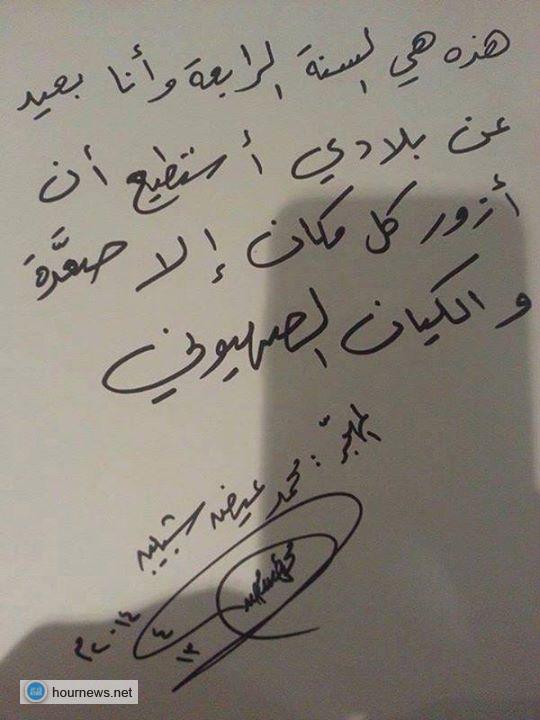 هذه هي السنة الرابعة وأنا بعيد
عن بلادي أستطيع أن
أزور كل مكان إلا صعدَّة
والكيان الصهيوني
المهجَّر: محمد عيضه شبيبه
٢٠١٤
٤
١٢
hournews.net